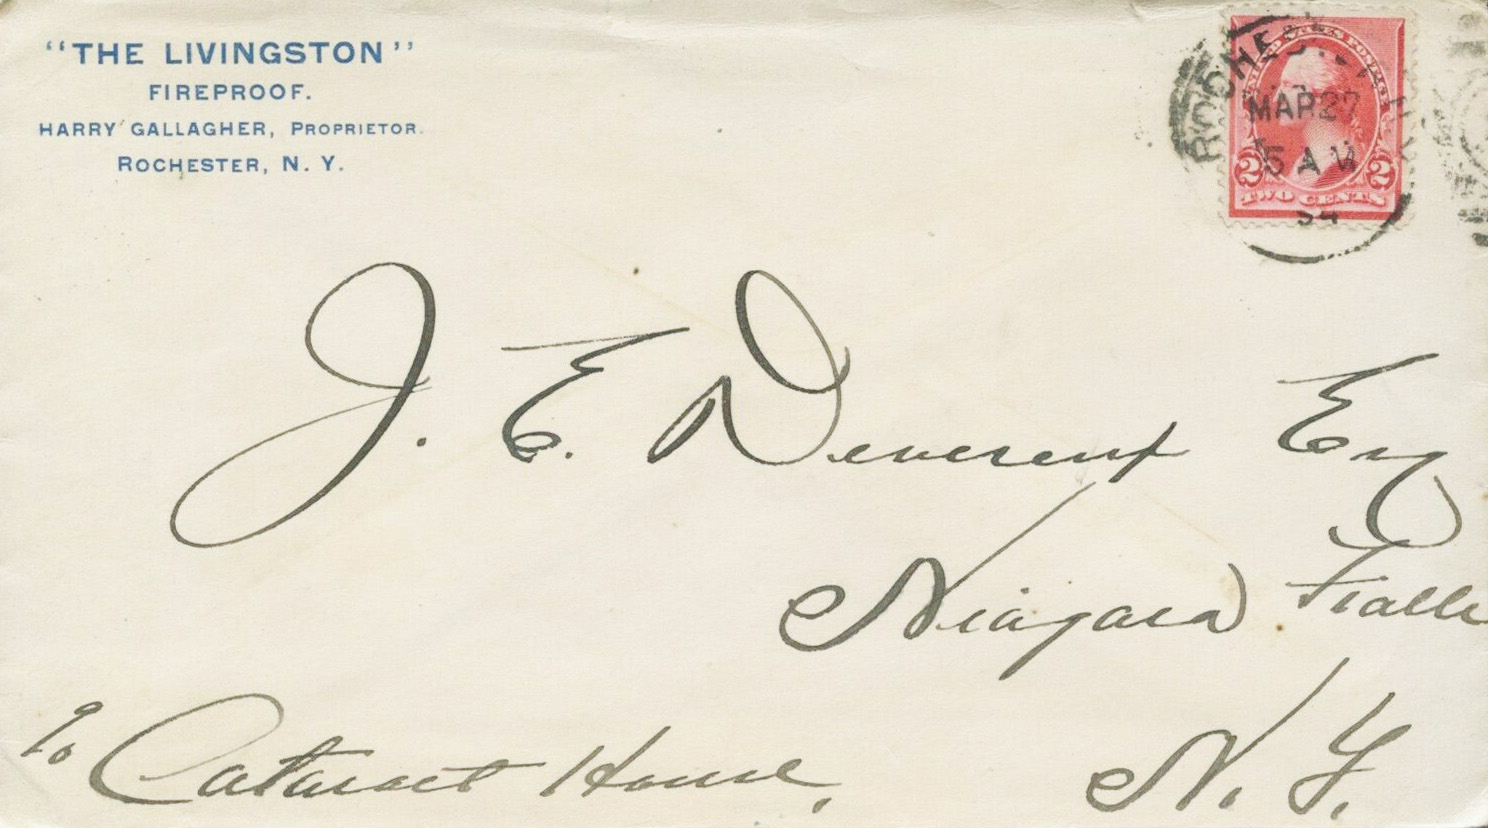 "THE LIVINGSTON"
FIREPROOF.
HARRY GALLAGHER, PROPRIETOR.
ROCHESTER, N. Y.
ROCHESTER, N.Y.
MAR 27
5 A M
94
UNITED STATES POSTAGE
2 2
TWO CENTS
J. E. Devereux Esq
Niagara Falls
N. Y.
℅ Cataract House,